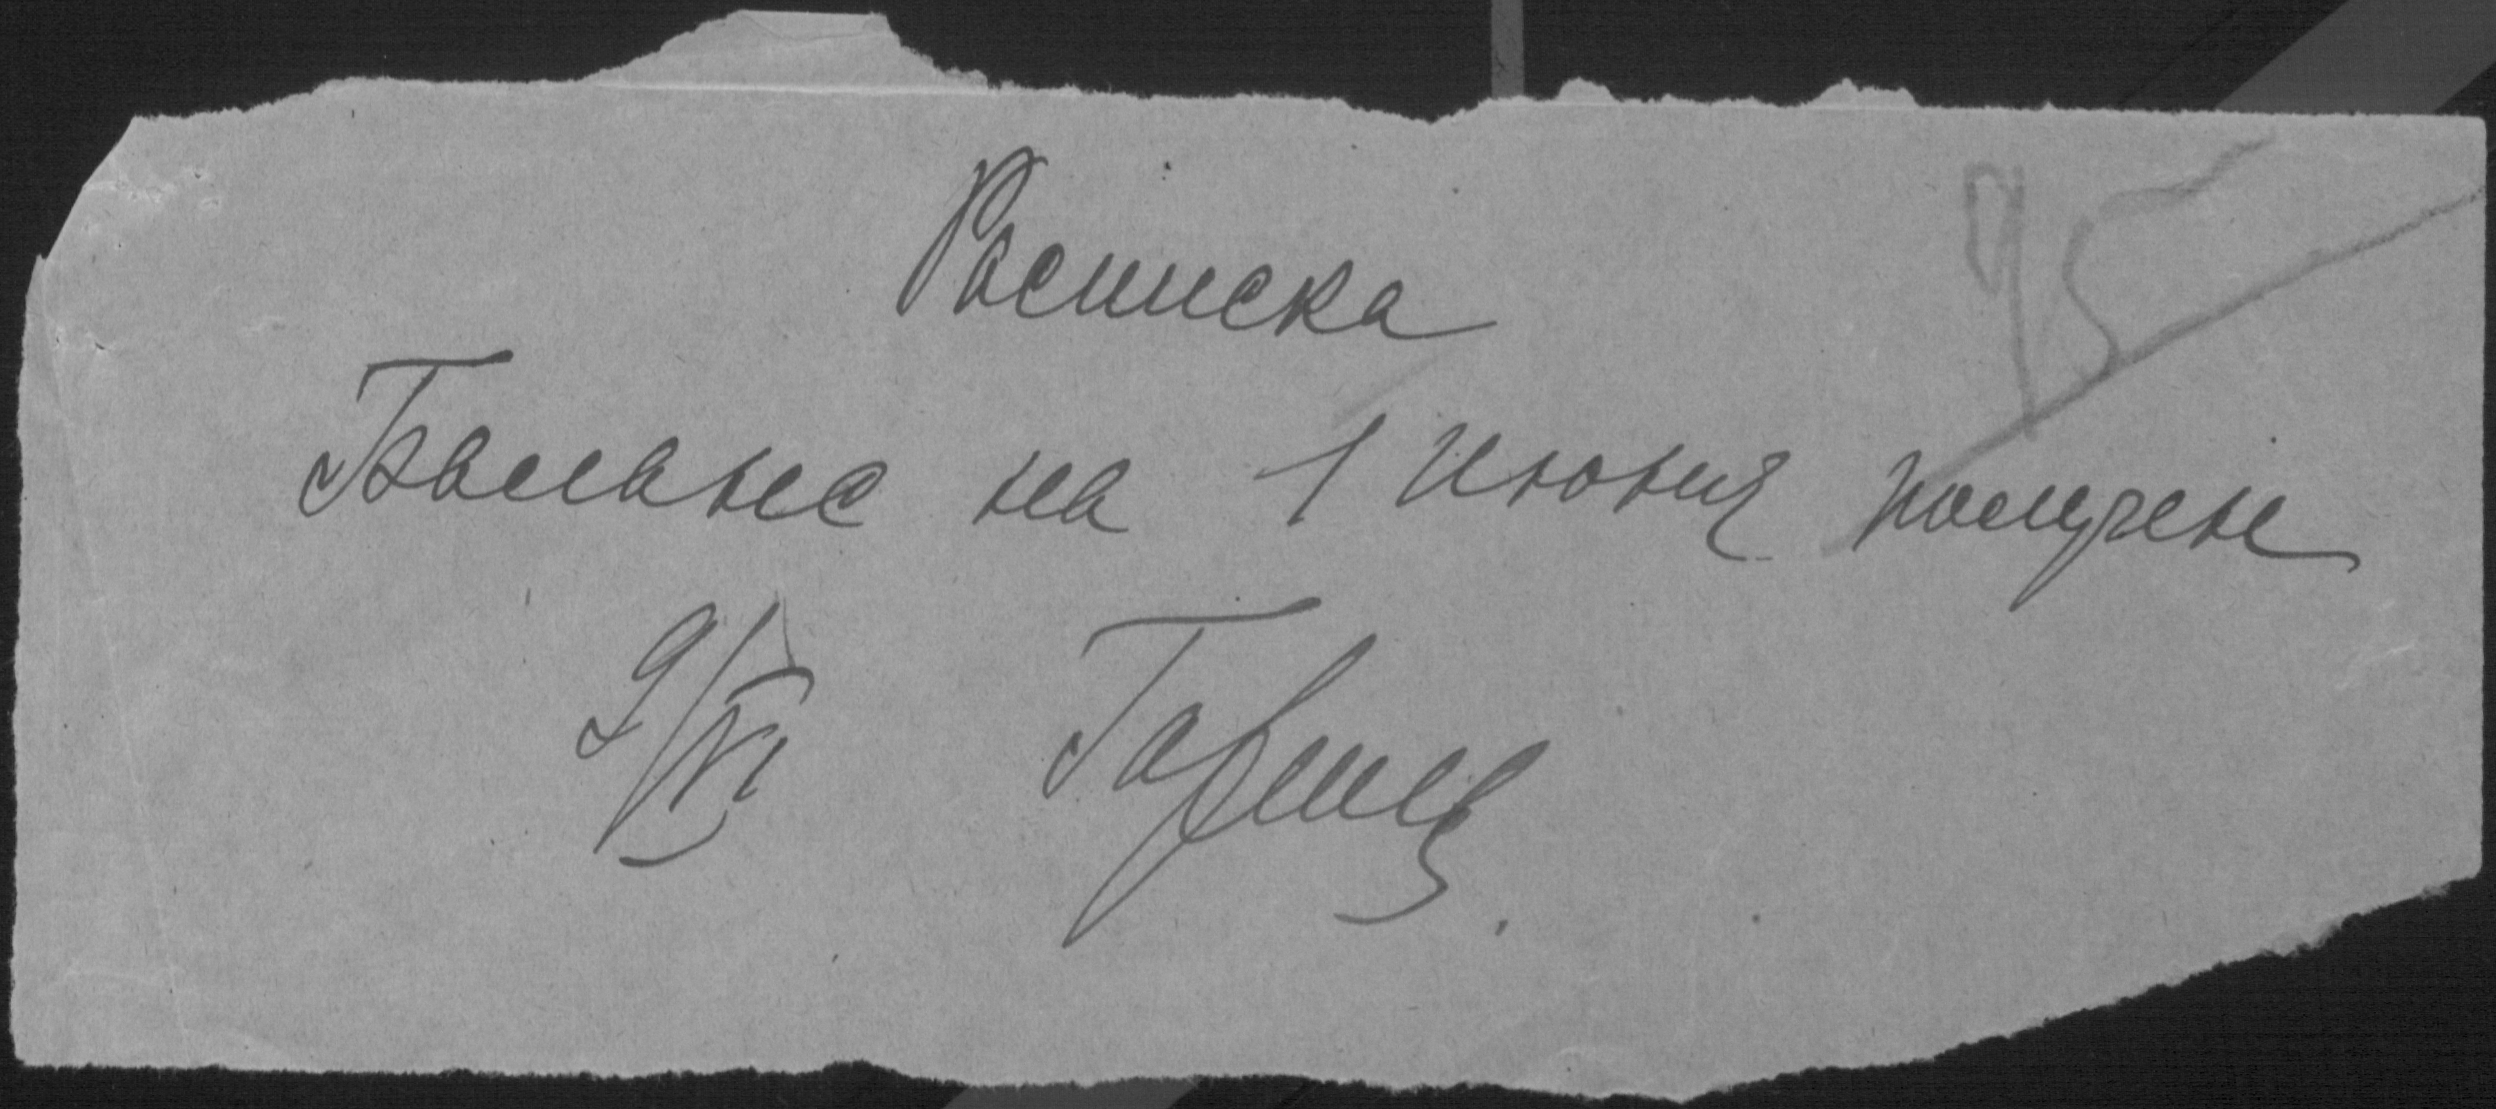 95
Росписка
Баланс на 1 июня получен
9/VI